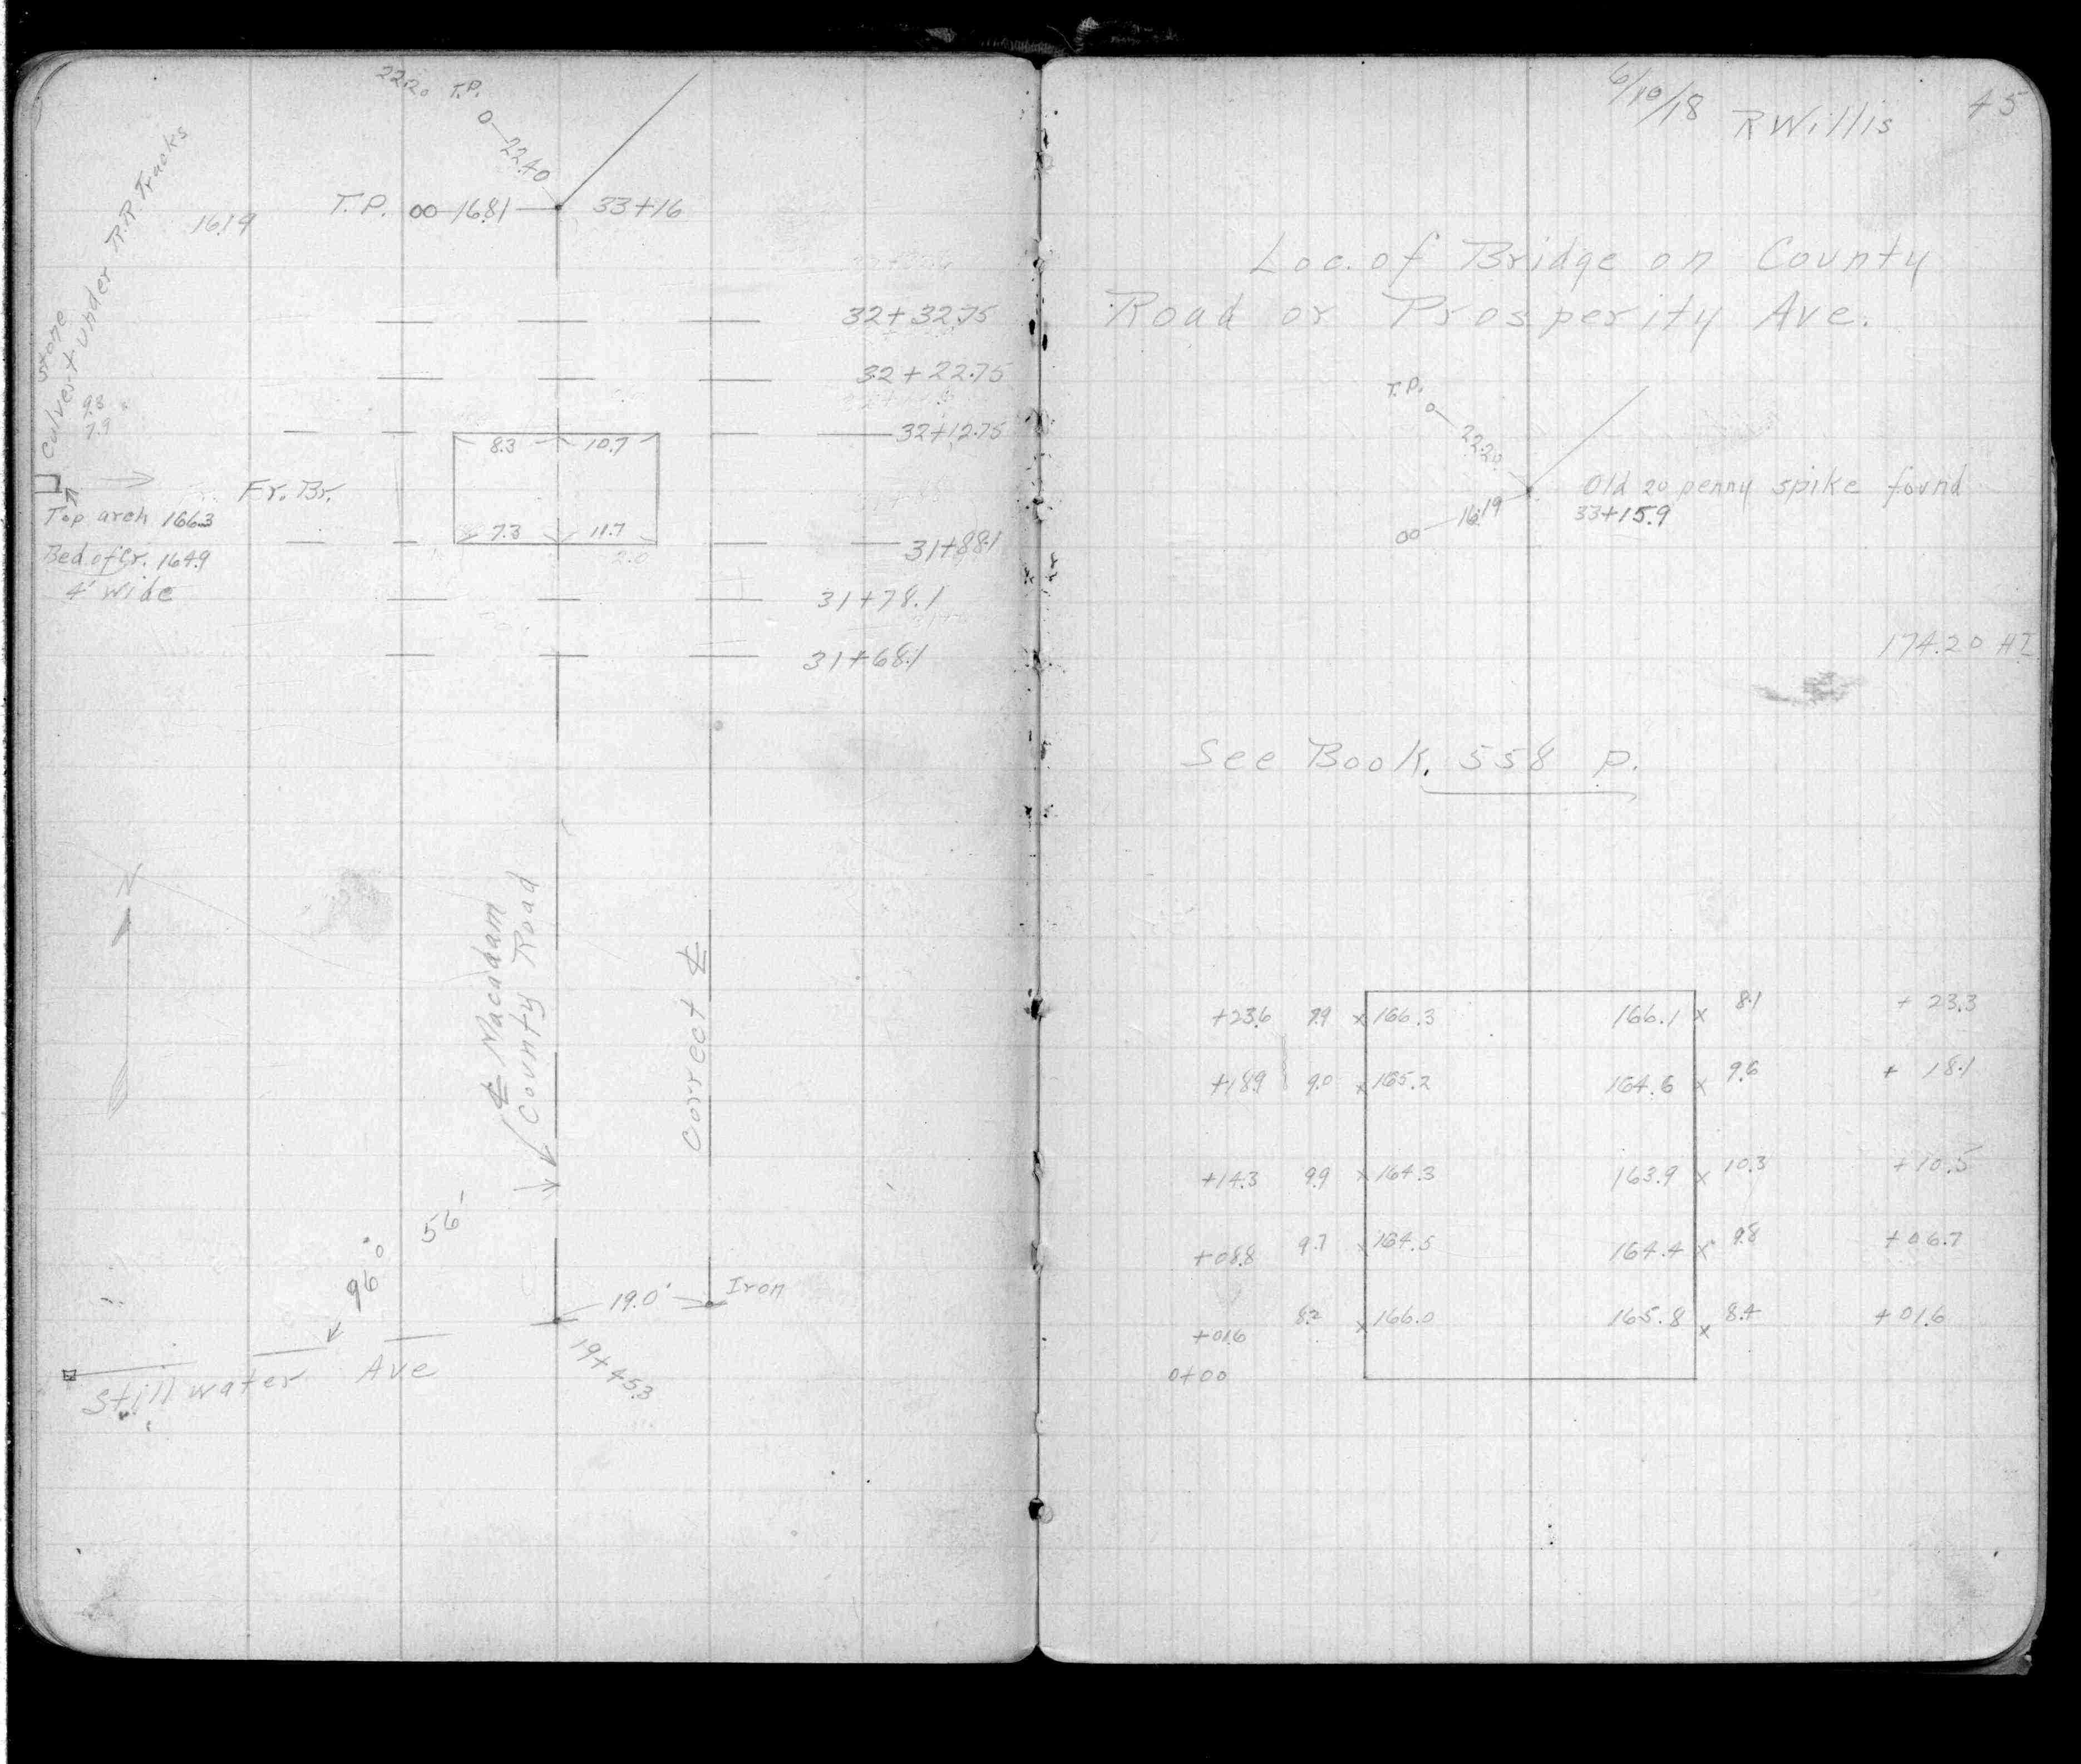 22.20 T.P.
22.40
T.P. 00 16.81 33+16
16.19
Stone
Culvert under R.R. Tracks
32+32.75
32+22.75
9.3
7.9
32+12.75
8.3 10.7
Fr. Br.
Top arch 166.3
7.3 11.7
2.0
31+88.1
Bed of Cr. 164.9
4' wide
31+78.1
31+68.1
N
℄ Macadam
County Road
Correct ℄
96° 56'
19.0' Iron
19+45.3
Stillwater Ave
6/10/18 R Willis 45
Loc. of Bridge on County
Road or Prosperity Ave.
T.P.
22.20
Old 20 penny spike found
33+15.9
00 16.19
174.20 HI
See Book. 558 P.
+23.6 7.9 x 166.3 166.1 x 8.1 + 23.3
+18.9 9.0 x 165.2 164.6 x 9.6 + 18.1
+14.3 9.9 x 164.3 163.9 x 10.3 +10.5
+08.8 9.7 x 164.5 164.4 x 9.8 +06.7
+01.6 8.2 x 166.0 165.8 x 8.4 +01.6
0+00